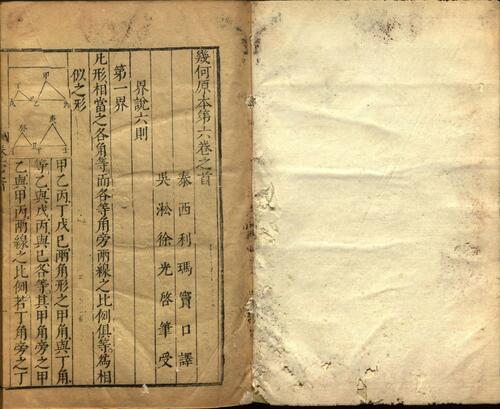 幾何原本第六卷之首
泰西利瑪竇口譯
吳淞徐光啓筆受
界說六則
第一界
凡形相當之各角等而各等角旁兩線之比例俱等爲相
似之形
甲乙丙丁戊己兩角形之甲角與丁角
等乙與戊丙與己各等其甲角旁之甲
乙與甲丙兩線之比例若丁角旁之丁